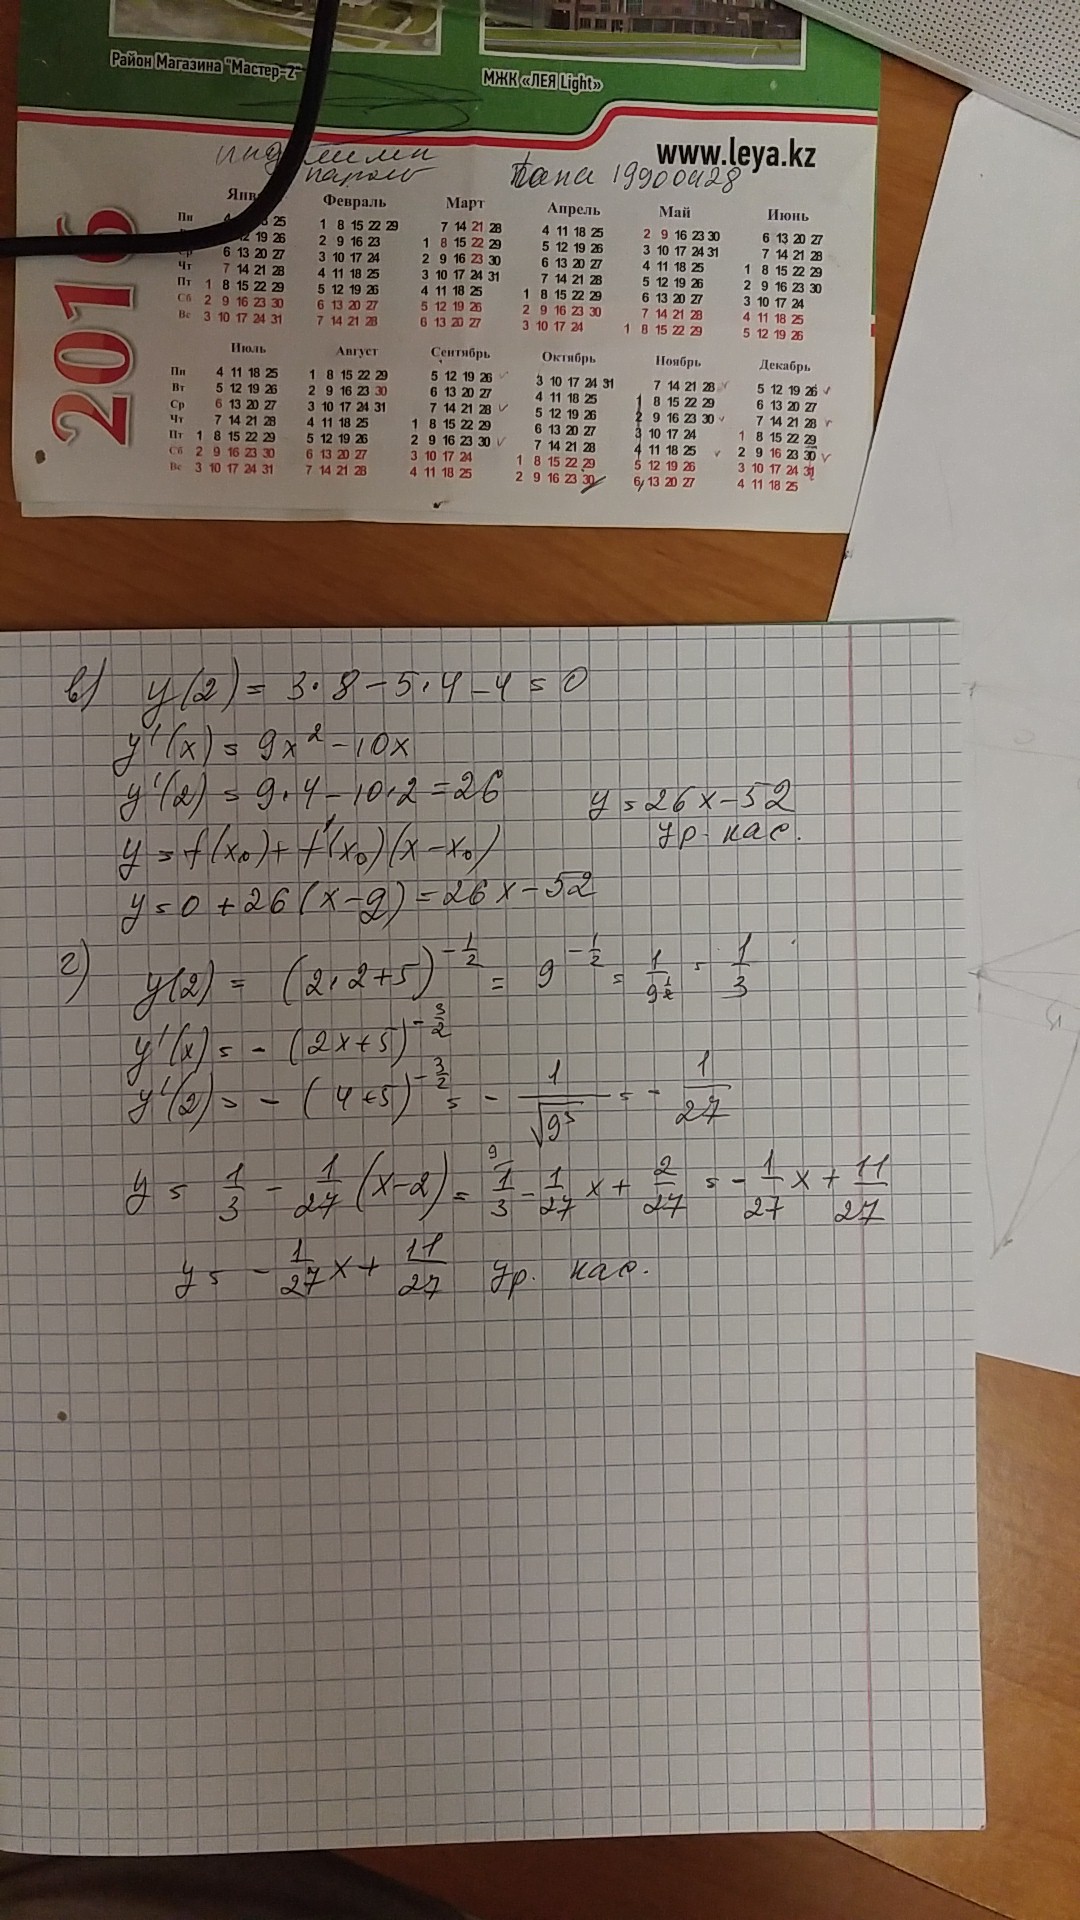 Район Магазина "Мастер-2"
МЖК «ЛЕЯ Light»
www.leya.kz
пароль 19900428
2016
Февраль Март Апрель Май Июнь
Пн 1 8 15 22 29 7 14 21 28 4 11 18 25 2 9 16 23 30 6 13 20 27
12 19 26 2 9 16 23 1 8 15 22 29 5 12 19 26 3 10 17 24 31 7 14 21 28
6 13 20 27 3 10 17 24 2 9 16 23 30 6 13 20 27 4 11 18 25 1 8 15 22 29
Чт 7 14 21 28 4 11 18 25 3 10 17 24 31 7 14 21 28 5 12 19 26 2 9 16 23 30
Пт 1 8 15 22 29 5 12 19 26 4 11 18 25 1 8 15 22 29 6 13 20 27 3 10 17 24
Сб 2 9 16 23 30 6 13 20 27 5 12 19 26 2 9 16 23 30 7 14 21 28 4 11 18 25
Вс 3 10 17 24 31 7 14 21 28 6 13 20 27 3 10 17 24 1 8 15 22 29 5 12 19 26
Июль Август Сентябрь Октябрь Ноябрь Декабрь
Пн 4 11 18 25 1 8 15 22 29 5 12 19 26 3 10 17 24 31 7 14 21 28 5 12 19 26
Вт 5 12 19 26 2 9 16 23 30 6 13 20 27 4 11 18 25 1 8 15 22 29 6 13 20 27
Ср 6 13 20 27 3 10 17 24 31 7 14 21 28 5 12 19 26 2 9 16 23 30 7 14 21 28
Чт 7 14 21 28 4 11 18 25 1 8 15 22 29 6 13 20 27 3 10 17 24 1 8 15 22 29
Пт 1 8 15 22 29 5 12 19 26 2 9 16 23 30 7 14 21 28 4 11 18 25 2 9 16 23 30
Сб 2 9 16 23 30 6 13 20 27 3 10 17 24 1 8 15 22 29 5 12 19 26 3 10 17 24 31
Вс 3 10 17 24 31 7 14 21 28 4 11 18 25 2 9 16 23 30 6 13 20 27 4 11 18 25
в) y(2) = 3·8 - 5·4 - 4 = 0
y'(x) = 9x² - 10x
y'(2) = 9·4 - 10·2 = 26
y = 26x - 52
y = f(x₀) + f'(x₀)(x - x₀)
ур. кас.
y = 0 + 26(x - 2) = 26x - 52
г) y(2) = (2·2+5)^(-1/2) = 9^(-1/2) = 1/9^(1/2) = 1/3
y'(x) = -(2x+5)^(-3/2)
y'(2) = -(4+5)^(-3/2) = -1/√9³ = -1/27
y = 1/3 - 1/27 (x-2) = 9 1/3 - 1/27 x + 2/27 = -1/27 x + 11/27
y = -1/27 x + 11/27 ур. кас.